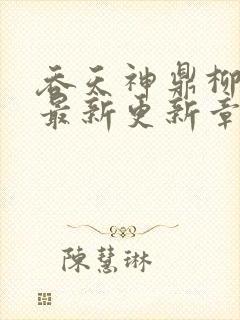 吞天神鼎柳
最新更新章
陈慧琳